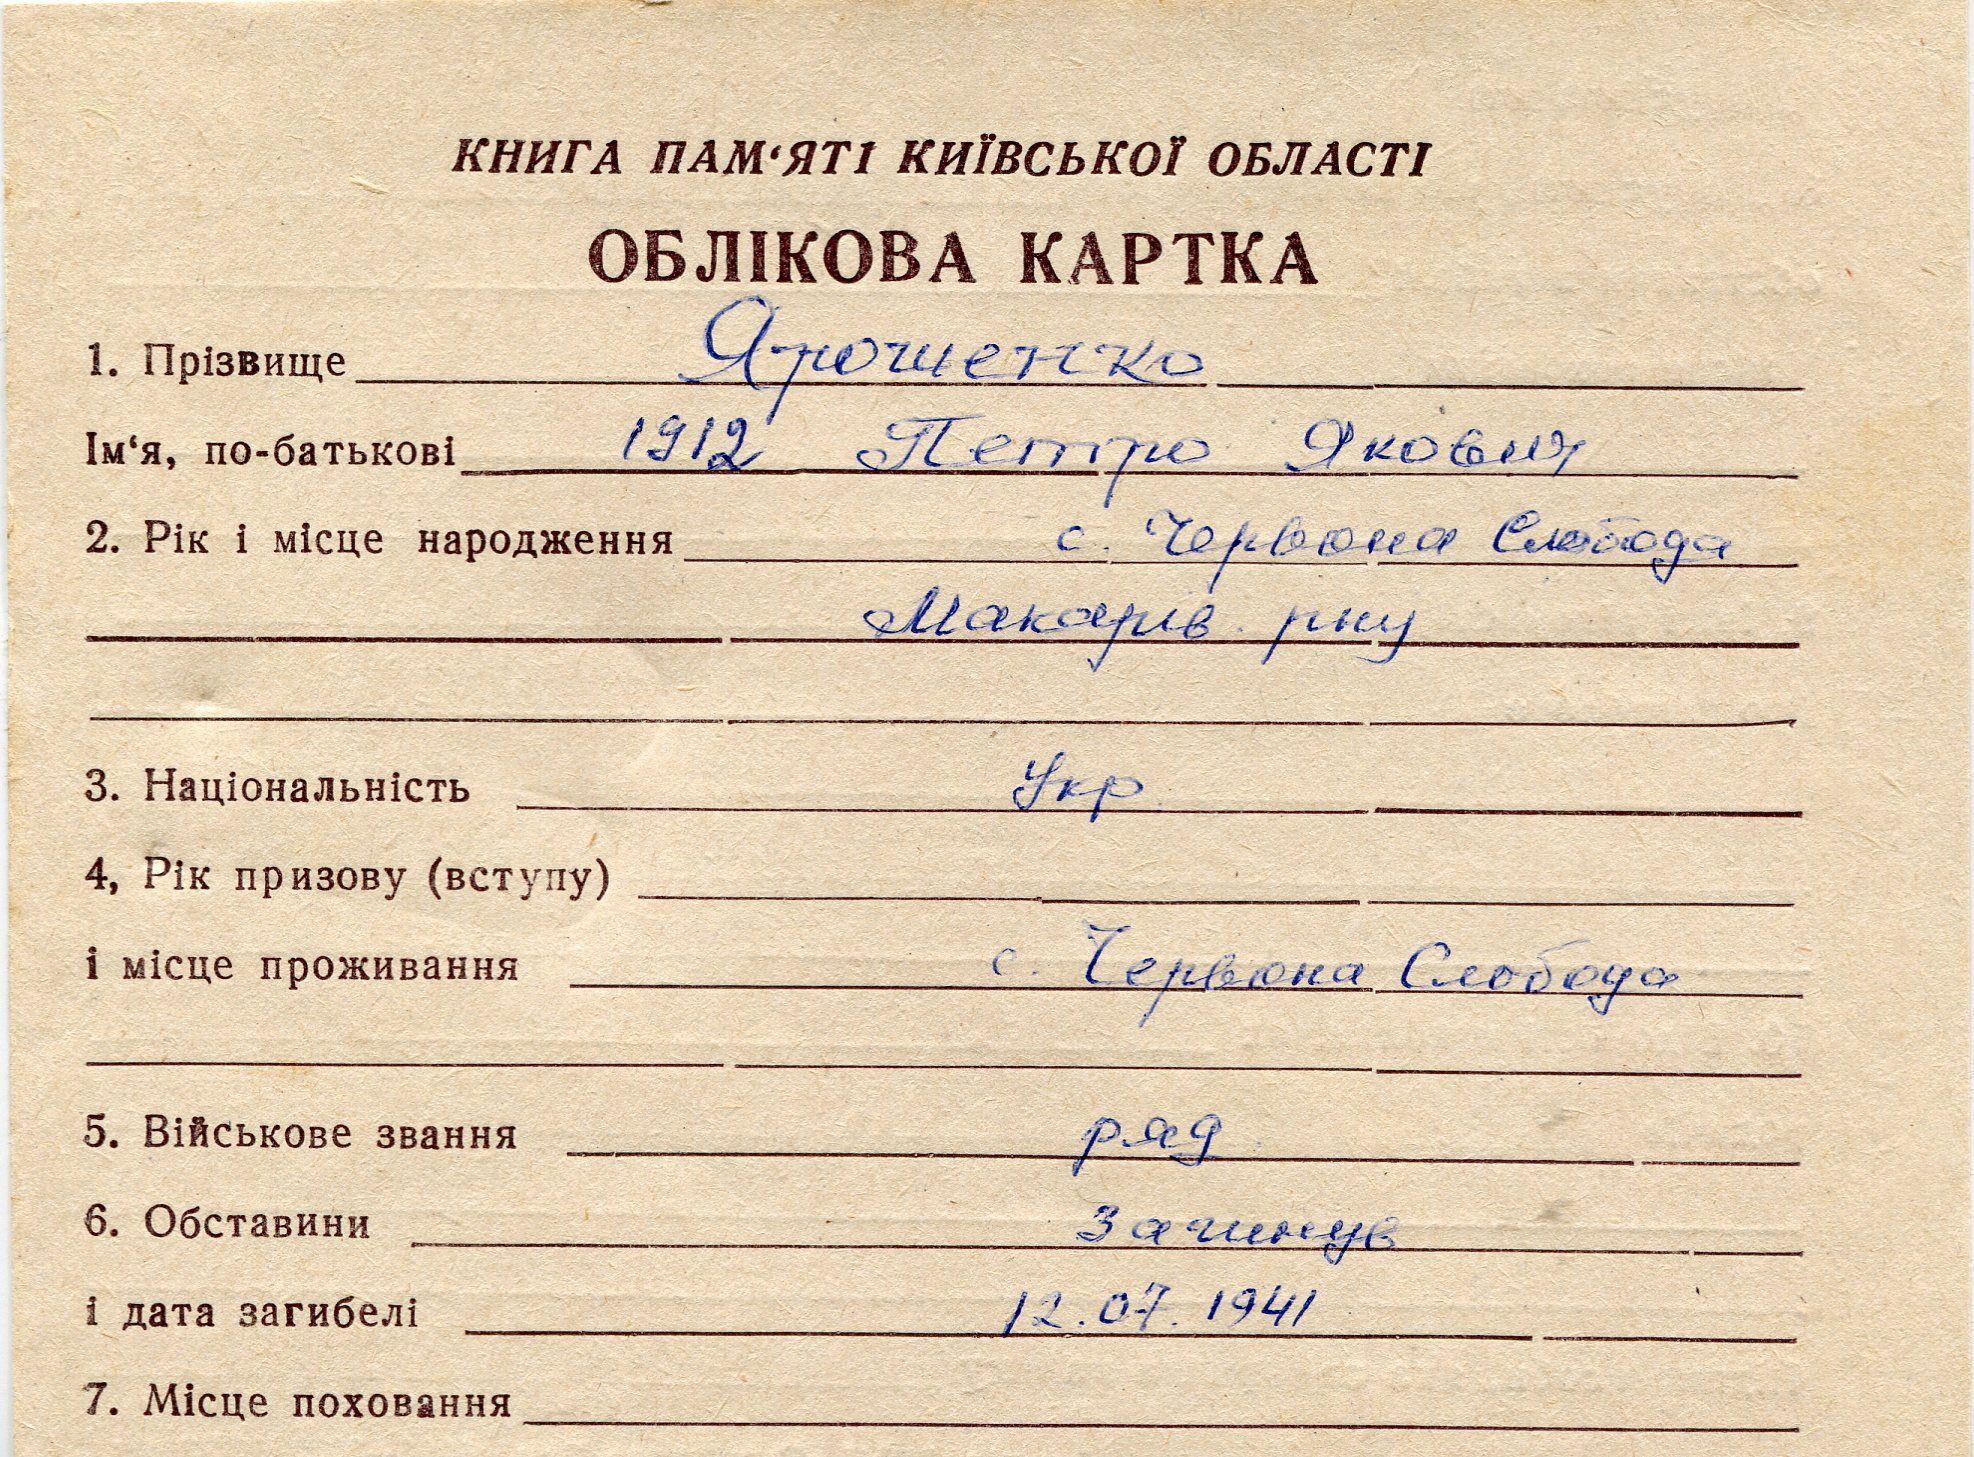 КНИГА ПАМ‘ЯТІ КИЇВСЬКОЇ ОБЛАСТІ
ОБЛІКОВА КАРТКА
1. Прізвище Ярошенко
Ім‘я, по-батькові 1912 Петро Якович
2. Рік і місце народження с. Червона Слобода
Макарів. рну
3. Національність Укр
4, Рік призову (вступу)
і місце проживання с. Червона Слобода
5. Військове звання ряд
6. Обставини Загинув
і дата загибелі 12.07.1941
7. Місце поховання